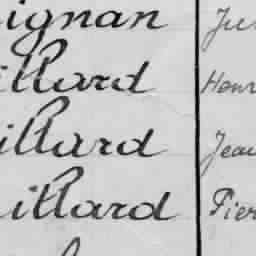 ignan Ju
illard Henr
illard Jean
illard Pier